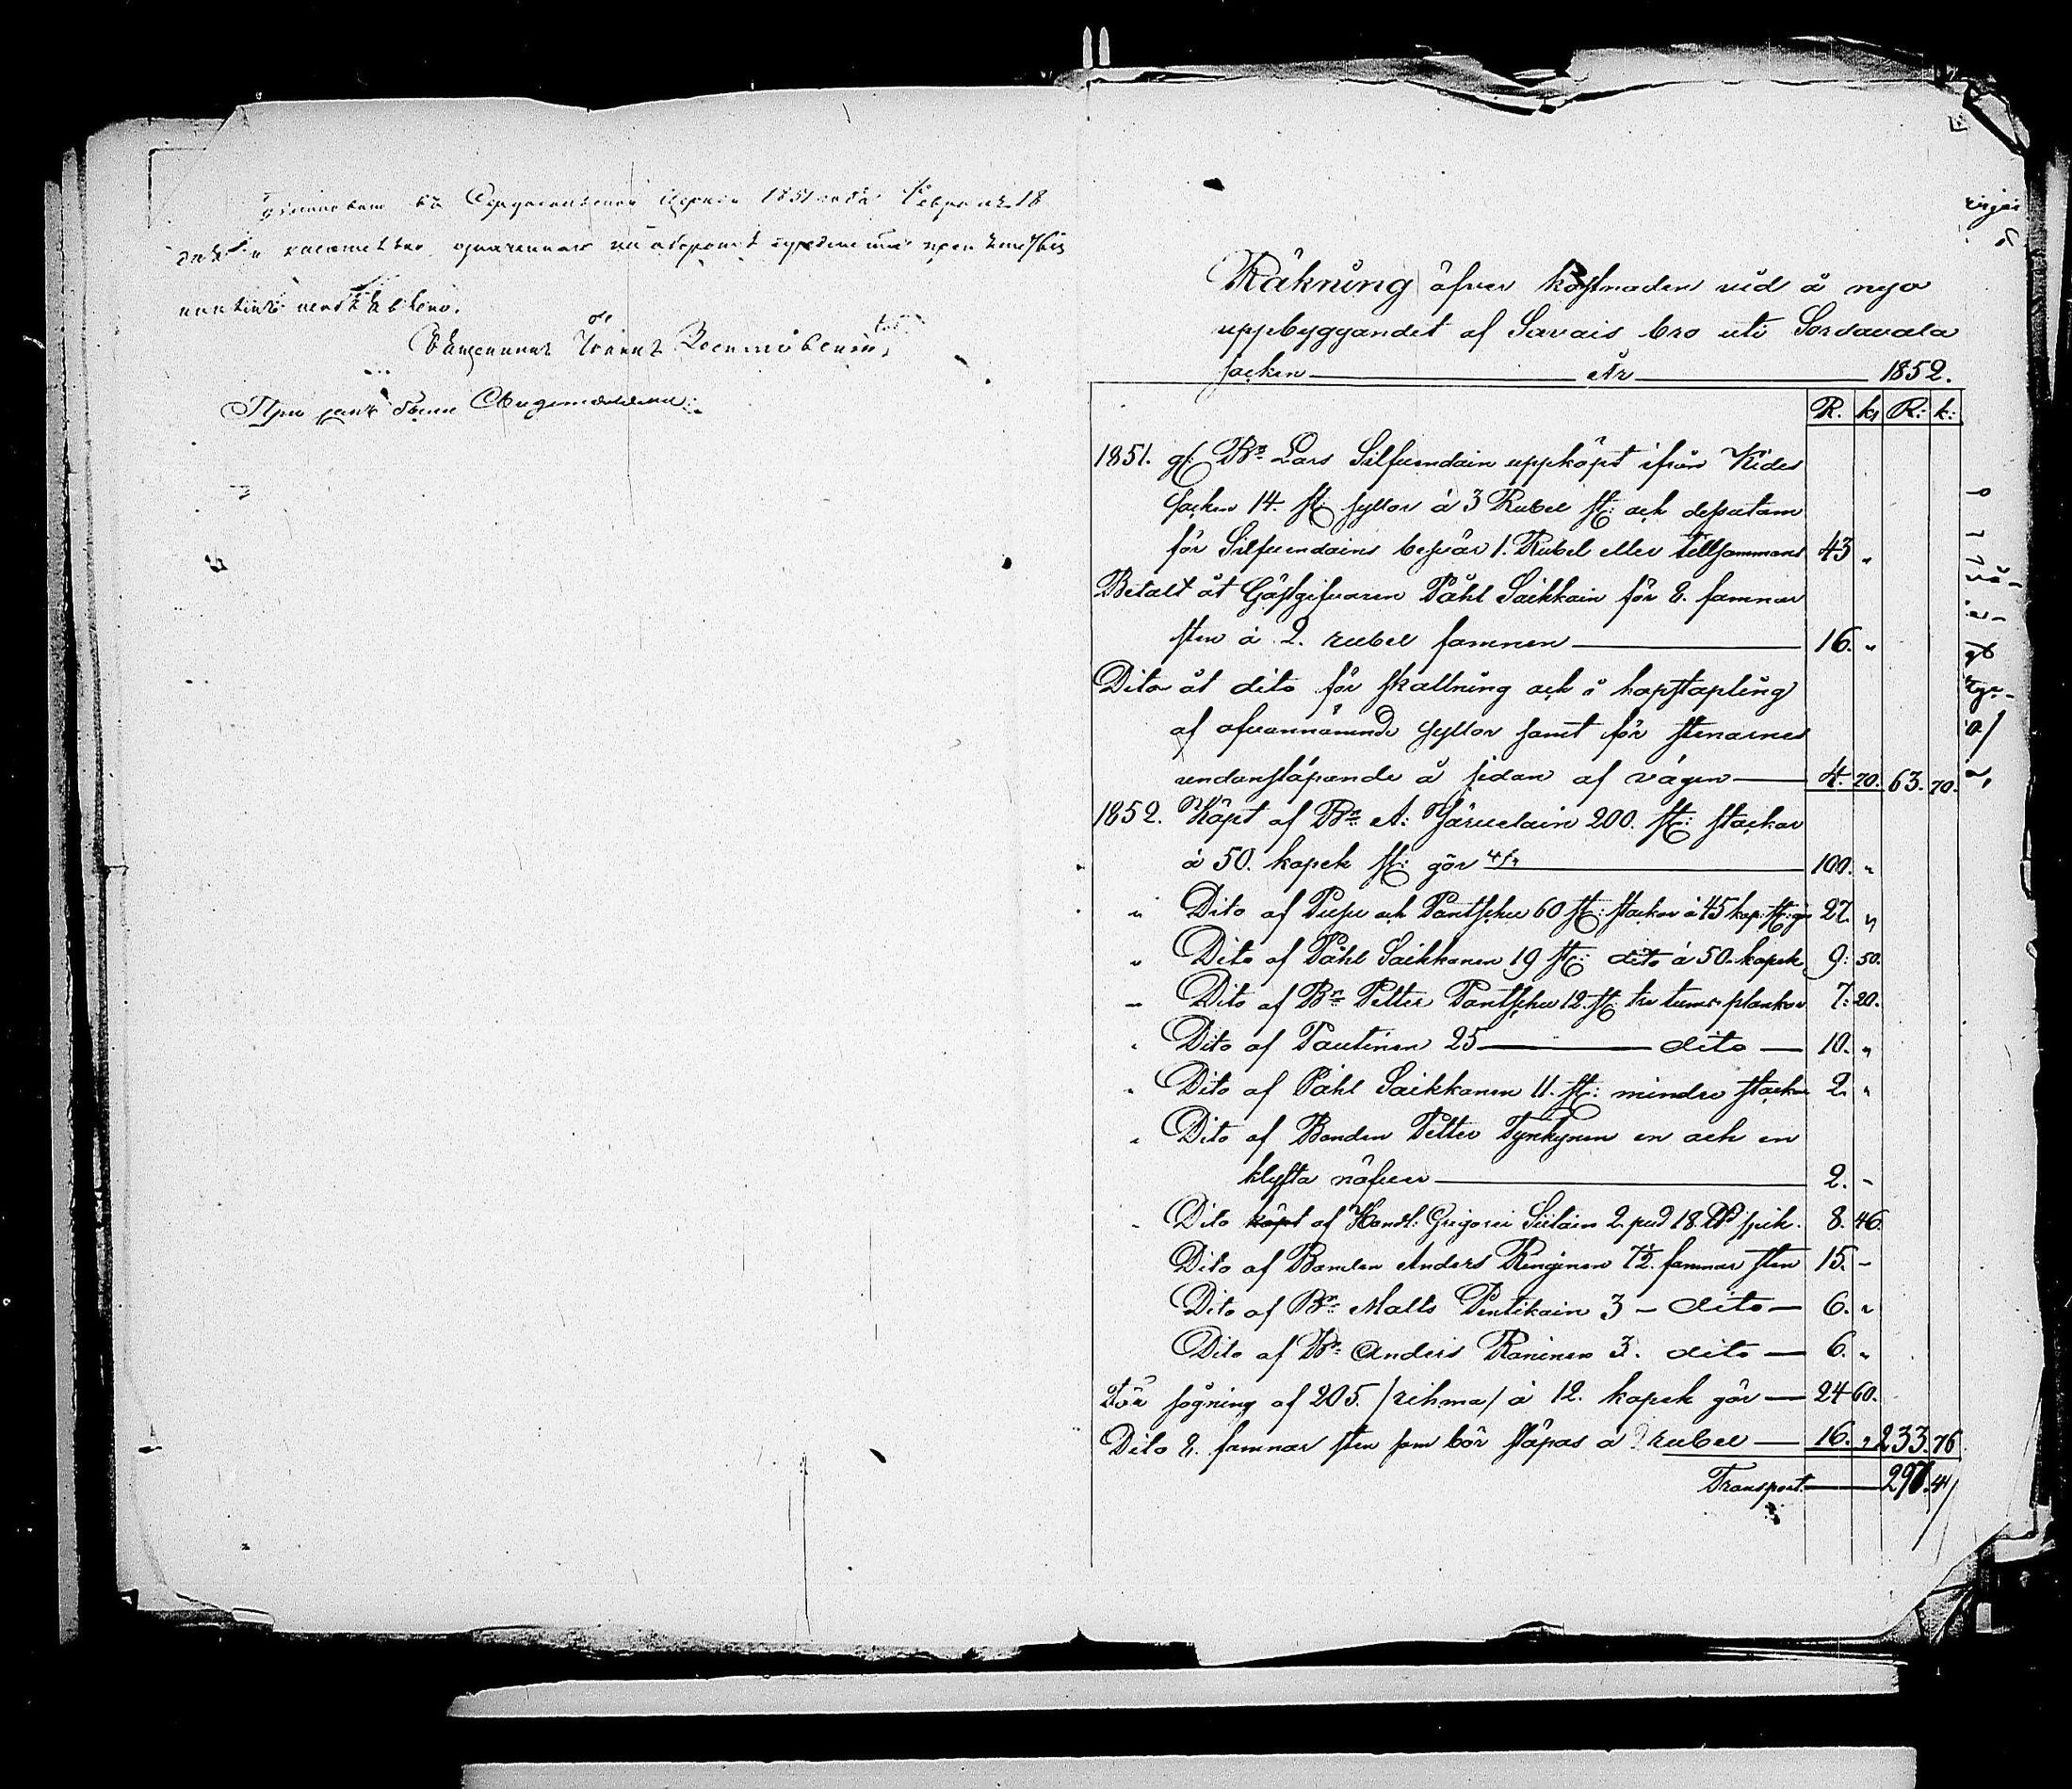 1851 года Февраля 18
означенном на обороте
Священник Іоаннъ
При семъ были Свидетелями:
Räkning öfver kostnaden vid å nyo
uppbyggandet af Savais bro uti Sordavala
socken År 1852.
R. k: R: k:
1851. gf. Bn Lars Silfvendain uppköpt ifrån Kides
socken 14. st: syllor à 3 Rubel st: och dessutom
för Silfvendains besvär 1. Rubel eller tillsammans 43 "
Betalt åt Gästgifvaren Påhl Saikkain för 8. famnar
sten à 2. rubel famnen 16. "
Dito åt dito för skallning och i hopstapling
af ofvannämnde syllor samt för stenarnes
undansläpande å sidan af vägen 4. 70. 63. 70.
1852. Köpt af Bn A: Järvelain 200. st: stockar
à 50. kopek st: gör 100. "
" Dito af och Pantschu 60 st: stockar à 45 kop: st: gör 27. "
" Dito af Påhl Saikkanen 19 st: dito à 50. kopek 9: 50.
" Dito af Bn Petter Pantschu 12. st: tre tums plankor 7: 20.
" Dito af Pautinen 25 dito 10. "
" Dito af Påhl Saikkanen 11. st: mindre stockar 2. "
" Dito af Bonden Petter Tynkynen en och en
klyfta näfver 2. -
" Dito köpt af Handl: Gregorii Siitain 2. pud 18. ℔ spik. 8. 46.
Dito af Bonden Anders Renginen 7½. famnar sten 15. -
Dito af Bn Matts Pentikain 3 - dito - 6. "
Dito af Bn Anders Raninen 3. dito 6. "
För sågning af 205. /rihma/ à 12. kopek gör 24 60.
Dito 8. famnar sten som bör släpas à 2 rubel 16. " 233. 76
Transport 297. 4